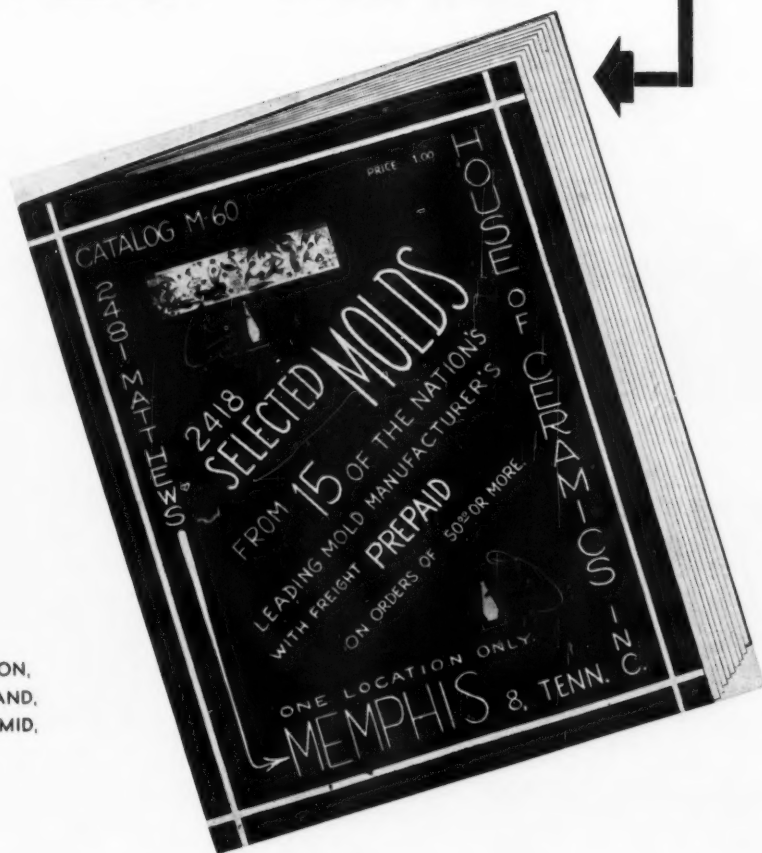 CATALOG M-60
PRICE 1.00
HOUSE OF CERAMICS INC.
2481 MATTHEWS
2418
SELECTED MOLDS
FROM 15 OF THE NATION'S
LEADING MOLD MANUFACTURER'S
WITH FREIGHT PREPAID
ON ORDERS OF 5000 OR MORE.
ONE LOCATION ONLY.
MEMPHIS 8, TENN.
ON,
AND,
MID,